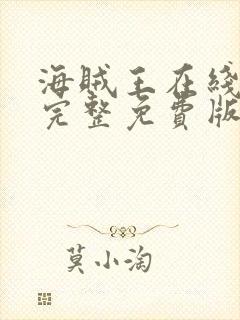 海贼王在线
完整免費版
莫小淘